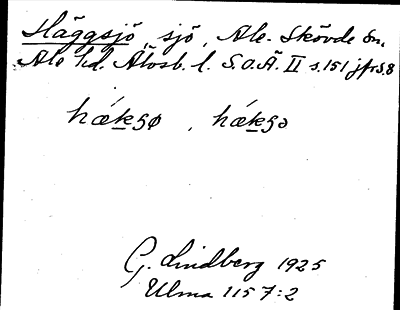 Häggsjö, sjö, Ale-Skövde sn.
Ale hd. Älvsb. l. S.O.Ä. II s. 151 jfr S. 8
hǽkʂø, hǽkʂə
G. Lindberg 1925
Ulma 1157:2